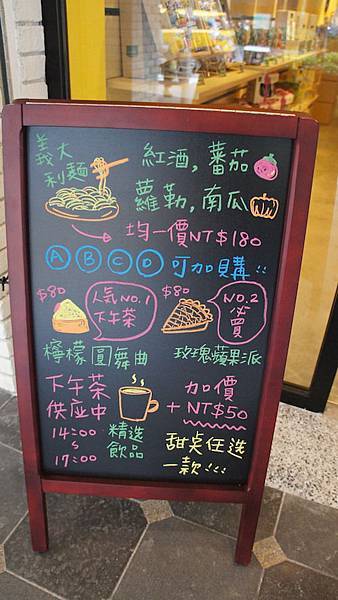 義大利麵
紅酒,蕃茄
蘿勒,南瓜
均一價NT$180
ⒶⒷⒸⒹ可加購!!
$80
人氣NO.1
下午茶
$80
NO.2
必買
檸檬圓舞曲
玫瑰蘋果派
下午茶
供应中
14:00
~
17:00
精选
飲品
加價
+NT$50
甜桌任选
一款!!!